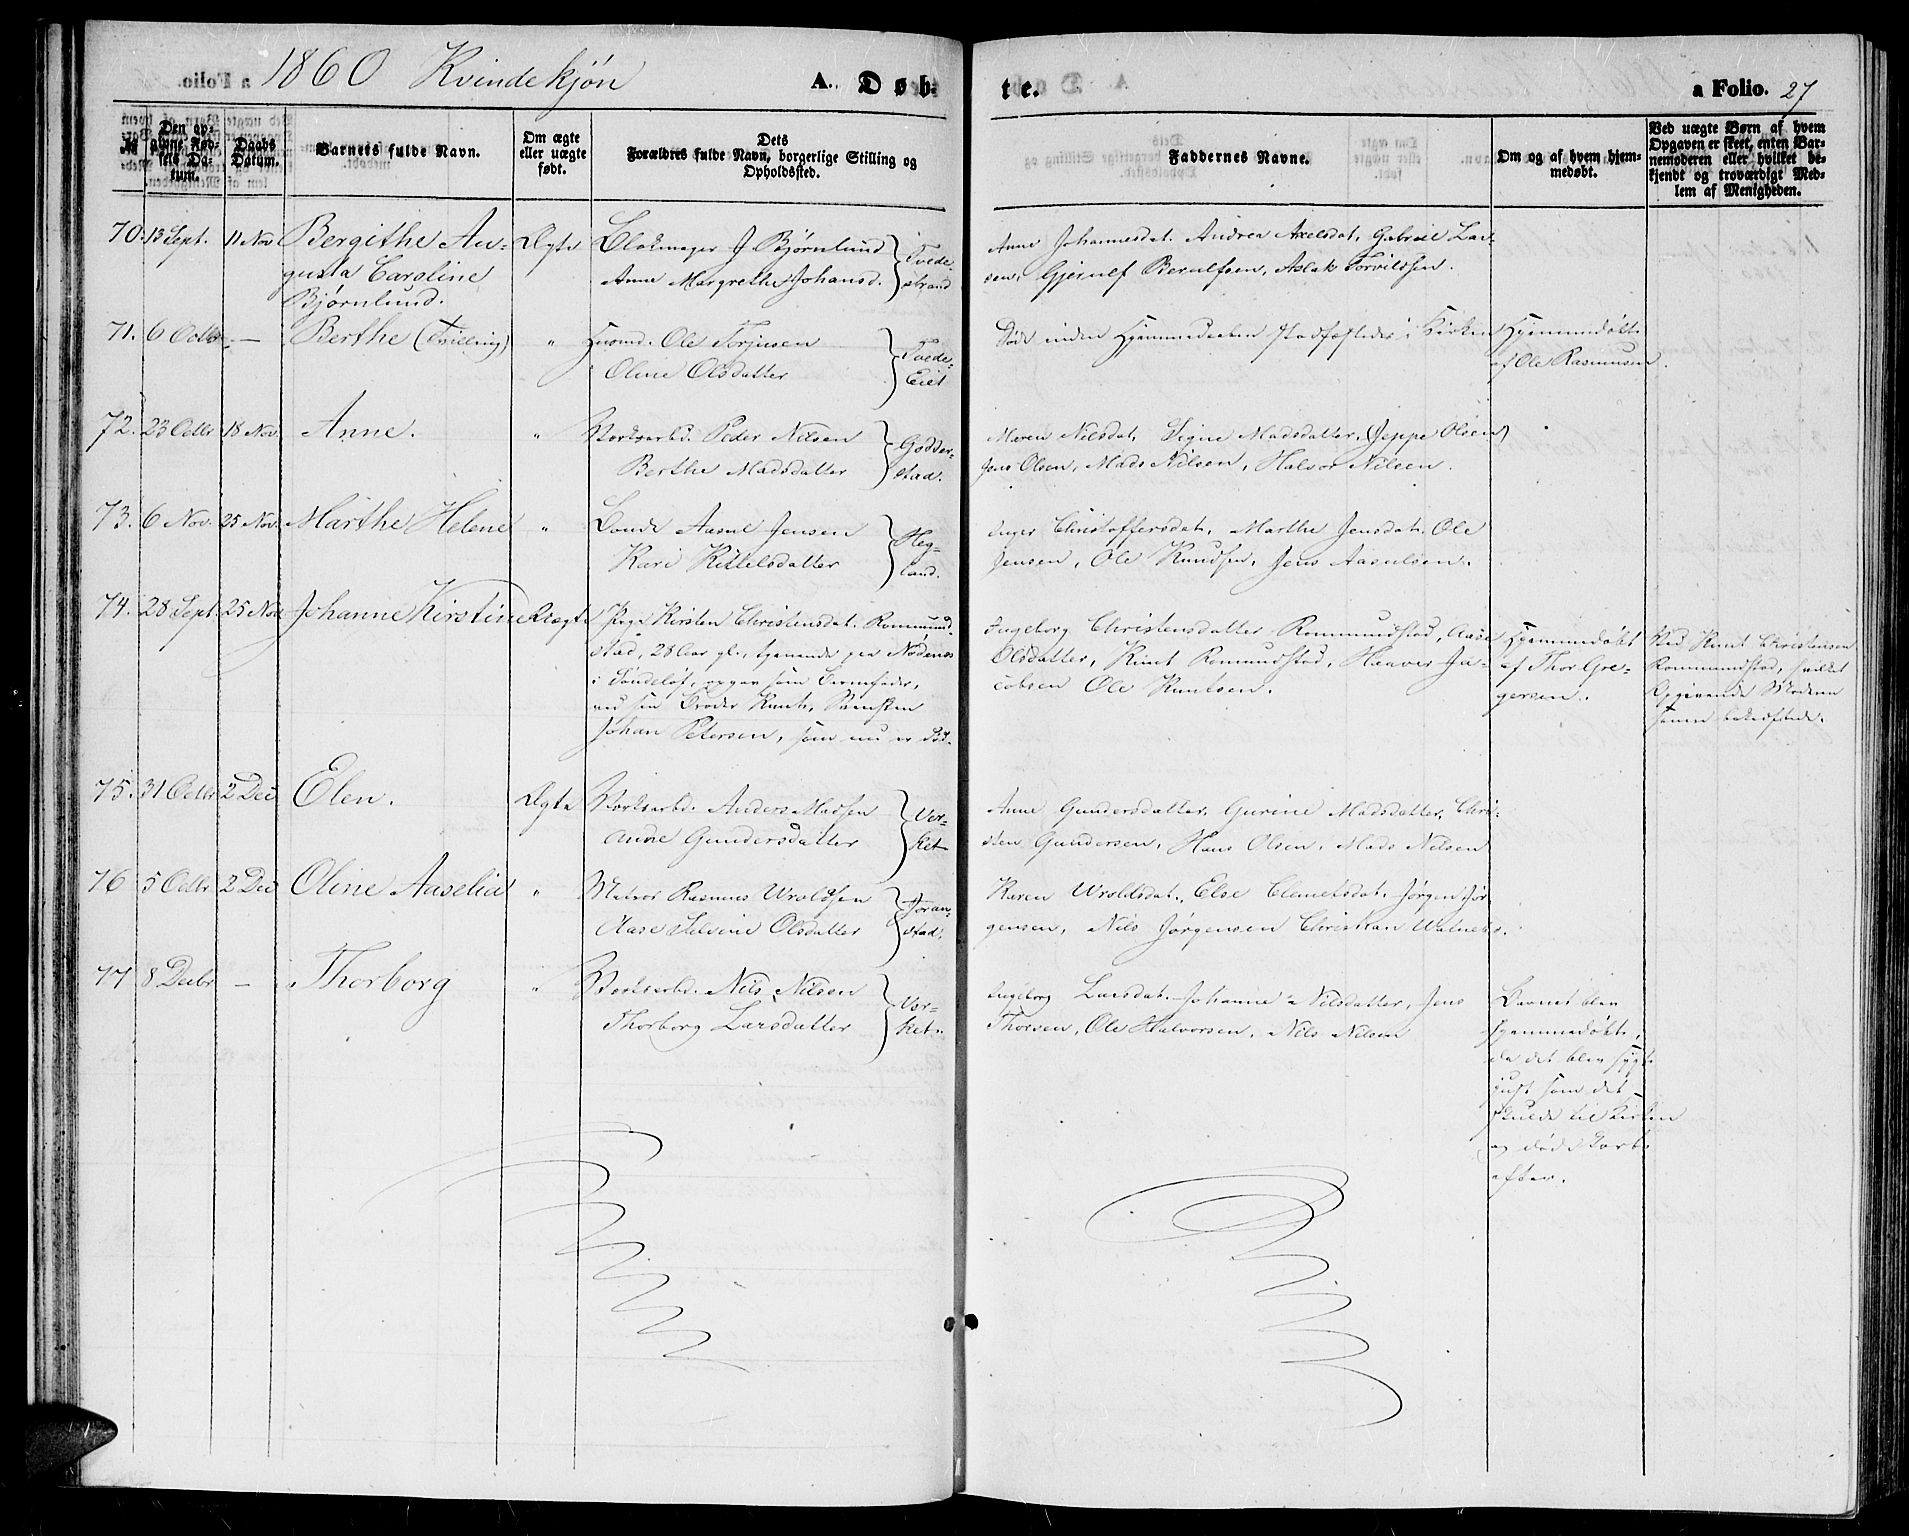 1860 Kvindekjøn
A. Døb-
te.
a Folio. 27
№
Den op-
givne Fød-
sels Da-
tum.
Daabs
Datum.
Barnets fulde Navn.
Om ægte
eller uægte
født.
Dets
Forældres fulde Navn, borgerlige Stilling og
Opholdssted.
Faddernes Navne.
Om og af hvem hjem-
medøbt.
Ved uægte Børn af hvem
Opgaven er skeet, enten Bar-
nemoderen eller hvilket be-
kjendt og troværdigt Med-
lem af Menigheden.
70. 13 Sept. 11 Nov Bergithe Au-
gusta Caroline
Bjørnlund.
Ægte
Blokmager J. Bjørnlund
Anne Margrethe Johansd.
Tvede-
strand
Anne Johannesdat. Andrea Axelsdat, Gabriel Lar-
sen, Gjerulf Berulfsen, Aslak Torvildsen.
71. 6 Octbr. — Berthe (Tvilling) "
Huusmd. Ole Torjusen
Oline Olsdatter
Tvede-
Eiet
Døde inden Hjemmedaaben stadfæstedes i Kirken
Hjemmedøbt
af Ole Rasmusen.
72. 23 Octbr 18 Nov. Anne. "
Verksarbd. Peder Nilsen
Berthe Madsdatter
Godder-
stad.
Maren Nilsdat, Signe Madsdatter, (Jeppe Olsen)
Jens Olsen, Mads Nilsen, Halvor Nilsen.
73. 6 Nov. 25 Nov. Marthe Helene "
Bonde Aasul Jensen
Kari Kittelsdatter
Heg-
land.
Inger Christoffersdat, Marthe Jensdat. Ole
Jensen, Ole Knudsen, Jens Aasulsen.
74. 28 Sept. 25 Nov Johanne Kirstine Uægte
Pige Kirsten Christensdat. Rommund-
stad, 28 Aar gl., tjenende paa Nodenes
i Søndeløf, opgav som Barnefader,
ved sin Broder Knut, Svensken
Johan Petersen, som nu er Død.
Ingeborg Christensdatter Rommundstad, Aase
Olsdatter, Knut Romundstad, Haaver Ja-
cobsen Ole Knutsen.
Hjemmedøbt
af Thor Gre-
gersen.
Ved Knut Christensen
Rommundstad, hvilket
Opgivende Moderen
senere bekræftede.
75. 31 Octbr 2 Dec Elen. Ægte
Verksarbd. Anders Madsen
Anne Gundersdatter
Ver-
ket
Anne Gundersdatter, Gurine Madsdatter, Chri-
sten Gundersen, Hans Olsen, Mads Nilsen
76 5 Octbr 2 Dec Oline Aaselia "
Matros Rasmus Wroldsen
Aase Selvine Olsdatter
Goran-
stad.
Karen Wroldsdat., Else Clemetsdat. Jørgen Jør
gensen, Nils Jørgensen Christian Walnes.
77 8 Decbr — Thorborg "
Verksarbd. Nils Nilsen
Thorborg Larsdatter
Ver-
ket.
Ingeborg Larsdat. Johanne Nilsdatter, Jens
Thorsen, Ole Halvorsen, Nils Nilsen
Barnet blev
hjemmedøbt,
da det blev sygt
just som det
skulde til Kirken
og døde kort
efter.